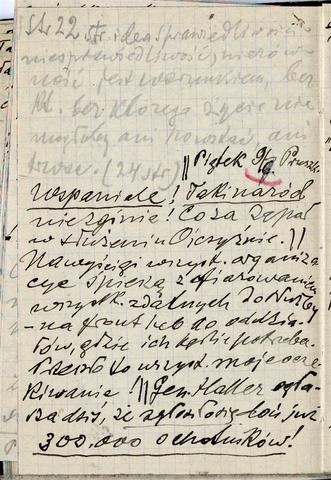 Str 22 str. idea sprawiedliwości
niesprawiedliwość, nierów-
ność jest warunkiem, bez
bez którego życie nie
mogłoby ani powstać ani
trwać. (24 str)
|| Piątek 9/ Pruszk.
Wspaniale! Taki naród
nie zginie! Co za zapał
w służeniu Ojczyźnie. ||
Na wyścigi wszystk. organiza-
cje spieszą z ofiarowaniem
wszystk. zdatnych do służby
- na front lub do oddzia-
łów, gdzie ich będzie potrzeba.
to wszyst. moje ocze-
kiwanie! || Jen. Haller ogła-
sza dziś, że zgłosiło się doń już
300.000 ochotników!